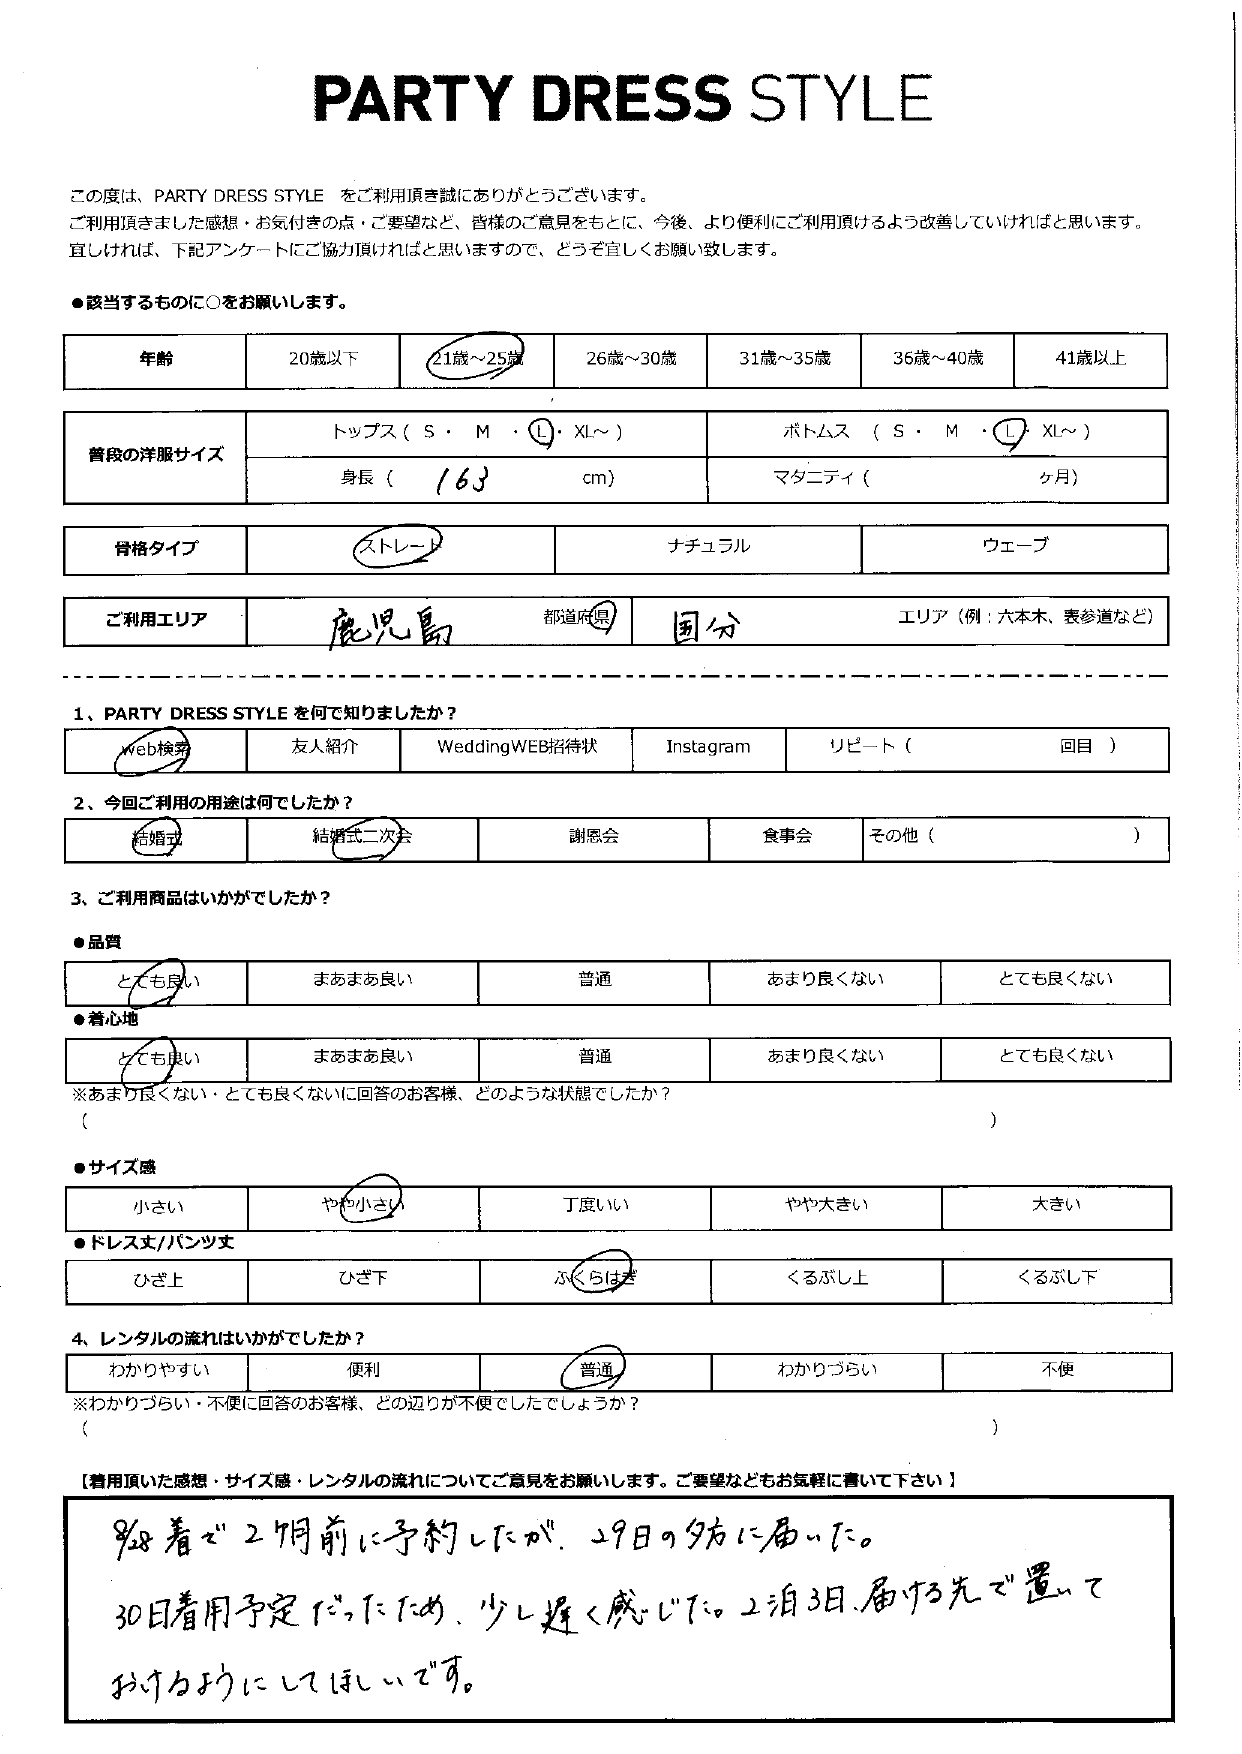 PARTY DRESS STYLE
この度は、PARTY DRESS STYLE をご利用頂き誠にありがとうございます。
ご利用頂きました感想・お気付きの点・ご要望など、皆様のご意見をもとに、今後、より便利にご利用頂けるよう改善していければと思います。
宜しければ、下記アンケートにご協力頂ければと思いますので、どうぞ宜しくお願い致します。
●該当するものに○をお願いします。
年齢 20歳以下 21歳～25歳 26歳～30歳 31歳～35歳 36歳～40歳 41歳以上
普段の洋服サイズ
トップス ( S ・ M ・ L ・ XL～ ) ボトムス ( S ・ M ・ L ・ XL～ )
身長 ( 163 cm) マタニティ ( ヶ月)
骨格タイプ ストレート ナチュラル ウェーブ
ご利用エリア 鹿児島 都道府県 国分 エリア（例：六本木、表参道など）
1、PARTY DRESS STYLE を何で知りましたか？
web検索 友人紹介 WeddingWEB招待状 Instagram リピート（ 回目 ）
2、今回ご利用の用途は何でしたか？
結婚式 結婚式二次会 謝恩会 食事会 その他（ ）
3、ご利用商品はいかがでしたか？
●品質
とても良い まあまあ良い 普通 あまり良くない とても良くない
●着心地
とても良い まあまあ良い 普通 あまり良くない とても良くない
※あまり良くない・とても良くないに回答のお客様、どのような状態でしたか？
（ ）
●サイズ感
小さい やや小さい 丁度いい やや大きい 大きい
●ドレス丈/パンツ丈
ひざ上 ひざ下 ふくらはぎ くるぶし上 くるぶし下
4、レンタルの流れはいかがでしたか？
わかりやすい 便利 普通 わかりづらい 不便
※わかりづらい・不便に回答のお客様、どの辺りが不便でしたでしょうか？
（ ）
【着用頂いた感想・サイズ感・レンタルの流れについてご意見をお願いします。ご要望などもお気軽に書いて下さい 】
8/28着で2ヶ月前に予約したが、29日の夕方に届いた。
30日着用予定だったため、少し遅く感じた。2泊3日、届ける先で置いて
おけるようにしてほしいです。